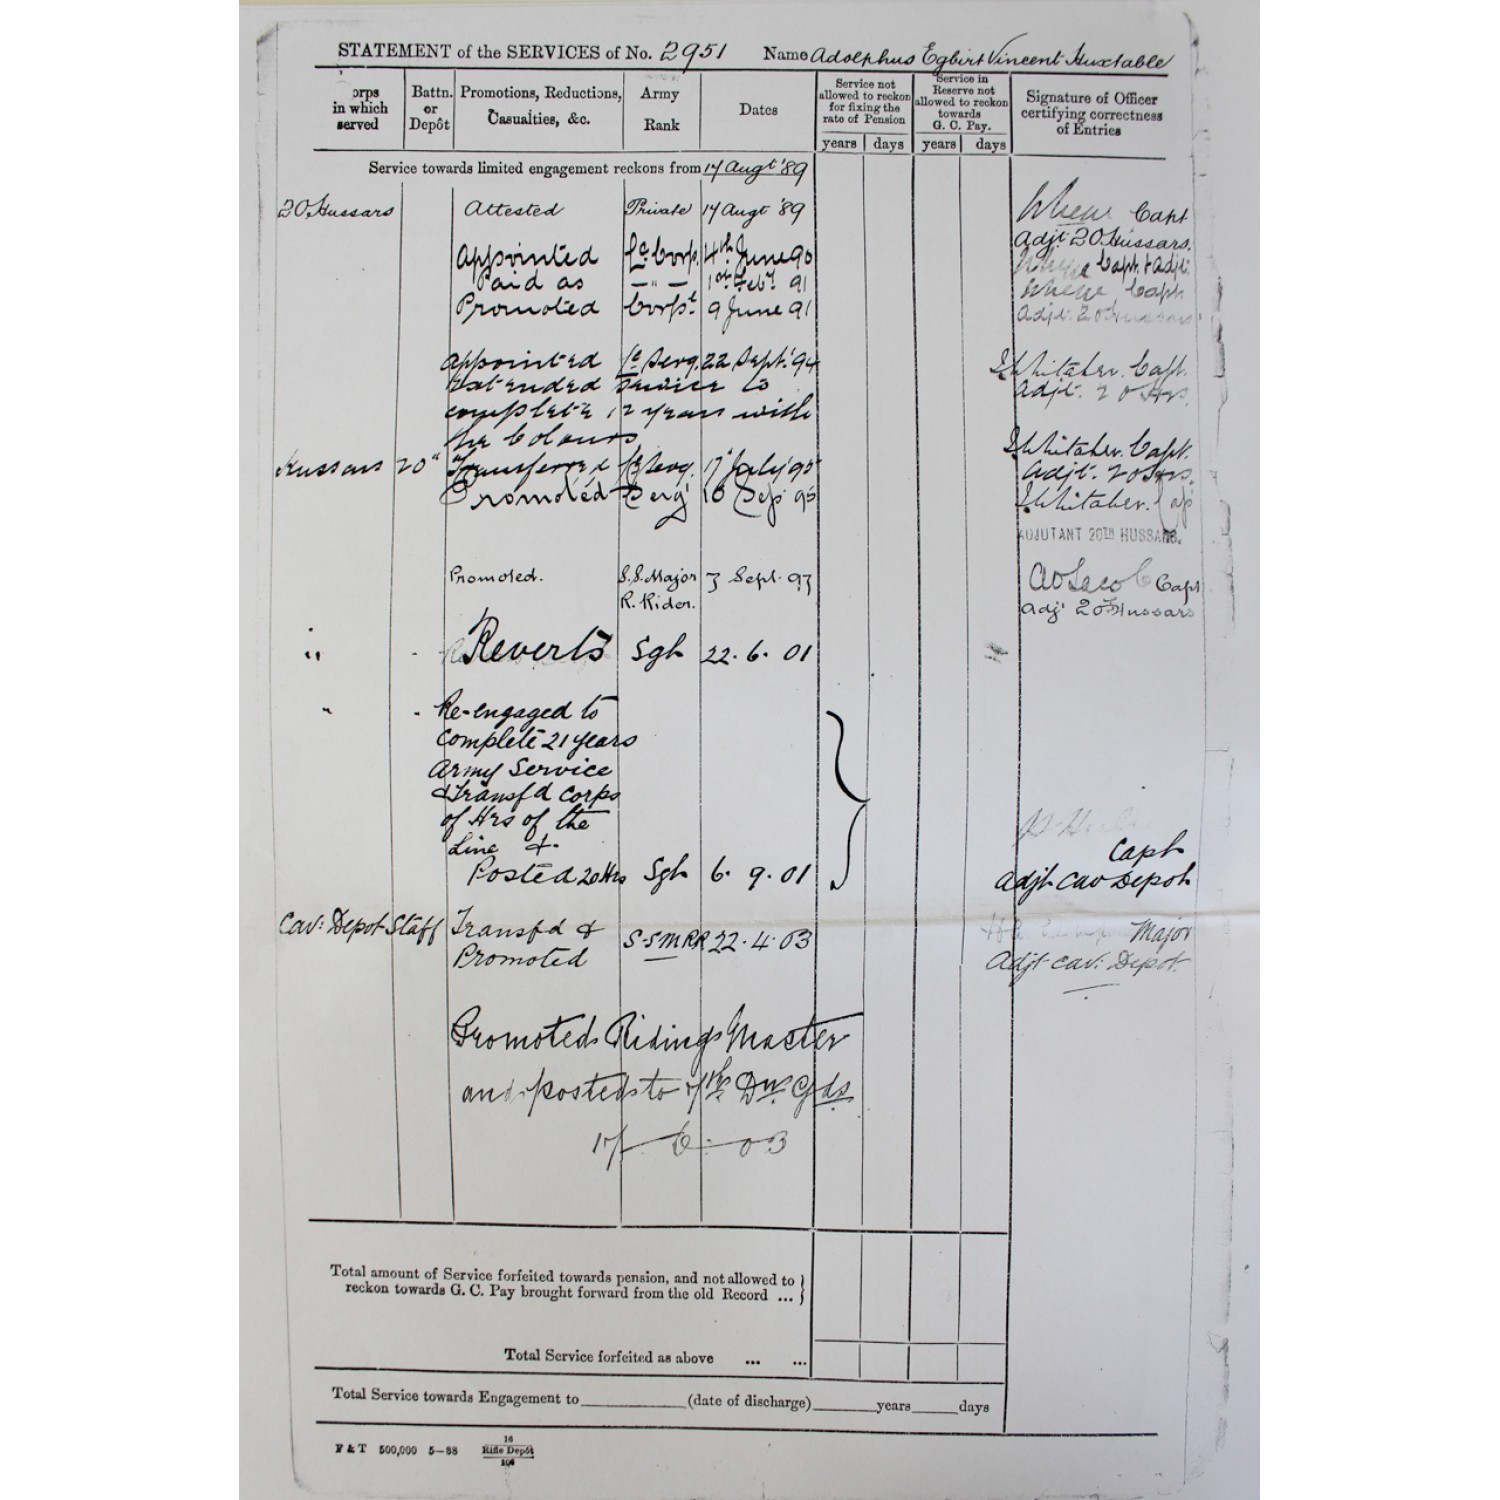 STATEMENT of the SERVICES of No. 2951 Name Adolphus Egbert Vincent Huxtable
orps in which served
Battn. or Depôt
Promotions, Reductions, Casualties, &c.
Army Rank
Dates
Service not allowed to reckon for fixing the rate of Pension
years days
Service in Reserve not allowed to reckon towards G. C. Pay.
years days
Signature of Officer certifying correctness of Entries
Service towards limited engagement reckons from 14 Augt '89
20 Hussars Attested Private 14 Augt '89 Capt
Adjt 20 Hussars.
Appointed La Corp. 4th June 90 Capt & Adjt.
Paid as — " — 1st Feby 91 Capt
Promoted Corpl 9 June 91 Adjt. 20 Hussars
Appointed Le Serg. 22 Sept. '94 Whitaker. Capt.
Extended service to Adjt. 20 Hrs.
complete 12 years with
the Colours Whitaker. Capt.
Hussars 20" Transferred Le Serg. 17 July '95 Adjt. 20 Hrs.
Promoted Serg 10 Sep 95 Whitaker. Cap
ADJUTANT 20TH HUSSARS.
Promoted. S.S. Major 7 Sept. 97 Capt
R. Rider. Adj 20 Hussars
" Reverts Sgt 22. 6. 01
" Re-engaged to
complete 21 years
Army Service
& Transf'd Corps
of Hrs of the
Line &
Posted 20 Hrs Sgt 6. 9. 01 Capt
Adjt Cav Depot
Cav: Depot Staff Transf'd & S.S.M.R.R 22. 4. 03 Major
Promoted Adjt Cav: Depot.
Promoted Riding Master
and posted to 7th Dn. Gds.
17 - 6 - 03
Total amount of Service forfeited towards pension, and not allowed to
reckon towards G. C. Pay brought forward from the old Record ...
Total Service forfeited as above ... ...
Total Service towards Engagement to (date of discharge) years days
F & T 500,000 5—88 16 Rifle Depôt 106